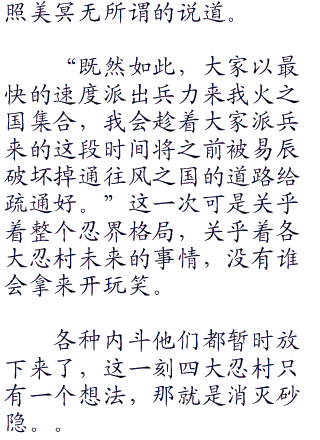 照美冥无所谓的说道。
“既然如此，大家以最
快的速度派出兵力来我火之
国集合，我会趁着大家派兵
来的这段时间将之前被易辰
破坏掉通往风之国的道路给
疏通好。”这一次可是关乎
着整个忍界格局，关乎着各
大忍村未来的事情，没有谁
会拿来开玩笑。
各种内斗他们都暂时放
下来了，这一刻四大忍村只
有一个想法，那就是消灭砂
隐。。